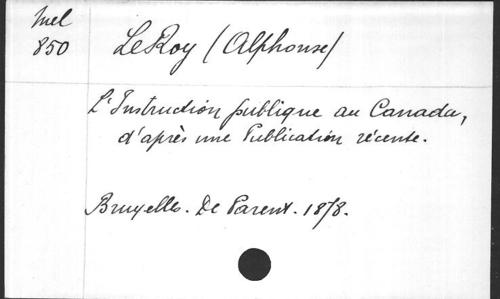 Mel
850
LeRoy (Alphonse)
L'Instruction publique au Canada,
d'après une Publication récente.
Bruxelles. De Parent. 1878.